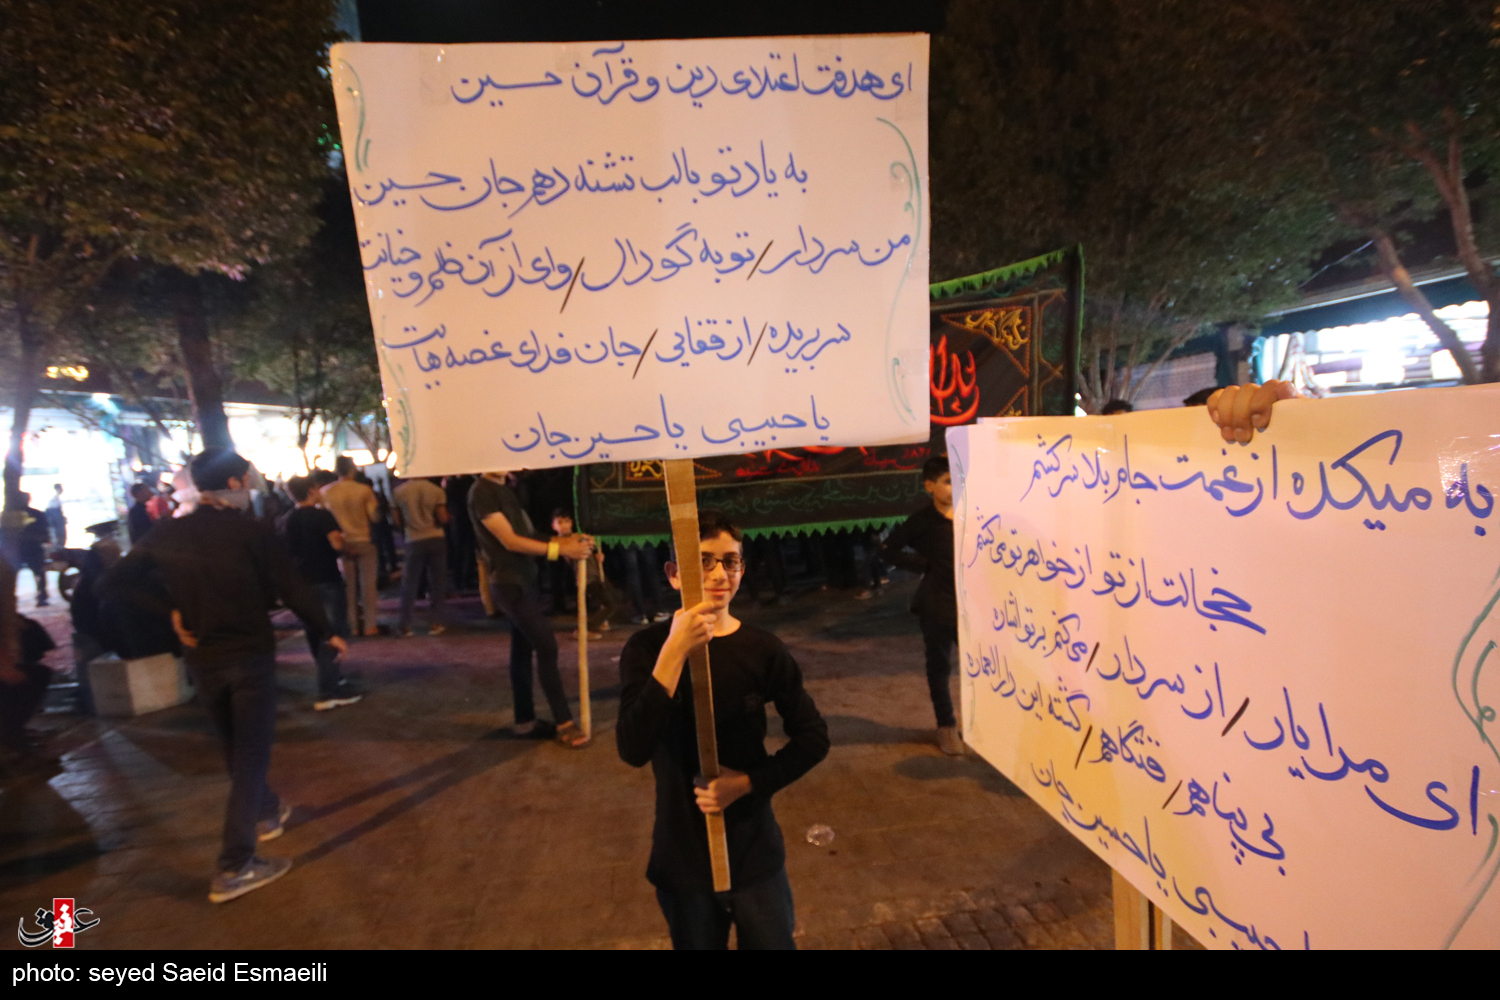 ای هدفت اعتلای دین و قرآن حسین
به یاد تو با لب تشنه دهم جان حسین
من سردار / تو به گودال / وای از آن ظلم و خیانت
سر بریده / از قفایی / جان فدای غصه هایت
یا حبیبی یا حسین جان
به میکده از غمت جام بلا سر کشم
خجالت از تو از خواهر تو می کشم
ای مرا یار / از سردار / می کنم بر تو اشاره
بی پناهم / قتلگاهم / گشته این دارالعماره
حبیبی یا حسین جان
عقیق
photo: seyed Saeid Esmaeili